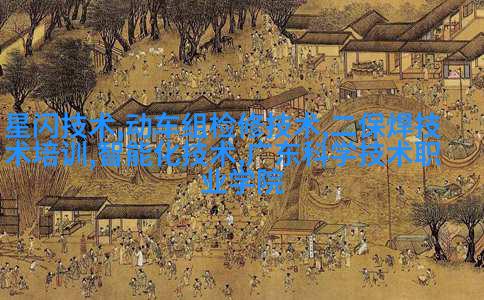 星闪技术,动车组检修技术,二保焊技
术培训,智能化技术,广东科学技术职
业学院